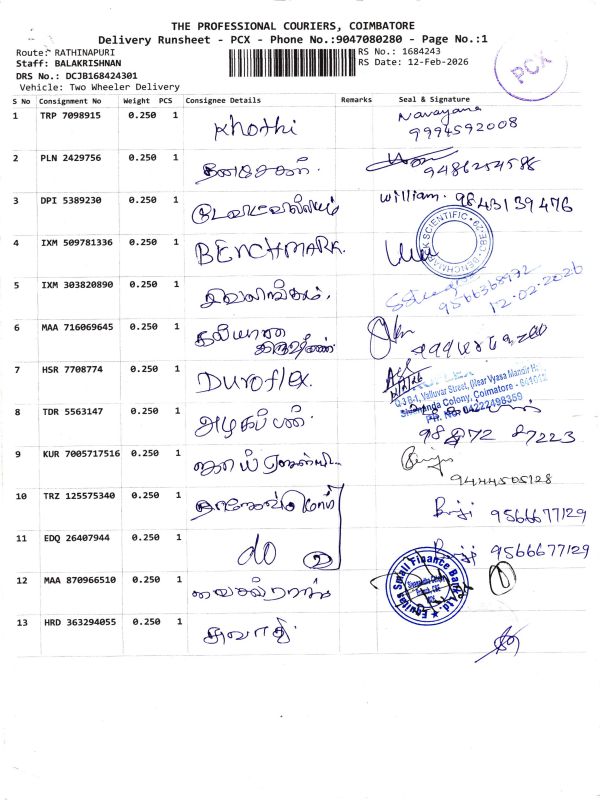 THE PROFESSIONAL COURIERS, COIMBATORE
Delivery Runsheet - PCX - Phone No.:9047080280 - Page No.:1
Route: RATHINAPURI
RS No.: 1684243
Staff: BALAKRISHNAN
RS Date: 12-Feb-2026
DRS No.: DCJB168424301
Vehicle: Two Wheeler Delivery
PCX
S No Consignment No Weight PCS Consignee Details Remarks Seal & Signature
1 TRP 7098915 0.250 1 Khothi Narayana
9994592008
2 PLN 2429756 0.250 1
9486254586
3 DPI 5389230 0.250 1 William. 9843139476
4 IXM 509781336 0.250 1 BENCHMARK.
5 IXM 303820890 0.250 1 சிவலிங்கம்.
9566368972
12-02-2026
6 MAA 716069645 0.250 1 கல்யாண
7 HSR 7708774 0.250 1 Duroflex.
Valluvar Street, (Near Vyasa Mandir
Sivananda Colony, Coimatore - 641012
PH. NO: 04222498369
8 TDR 5563147 0.250 1
87223
9 KUR 7005717516 0.250 1
9444505128
10 TRZ 125575340 0.250 1 Binji 9566677129
11 EDQ 26407944 0.250 1 do 2 Binji 9566677129
12 MAA 870966510 0.250 1
Equitas Small Finance Bank Ltd
13 HRD 363294055 0.250 1 சுவாதி.